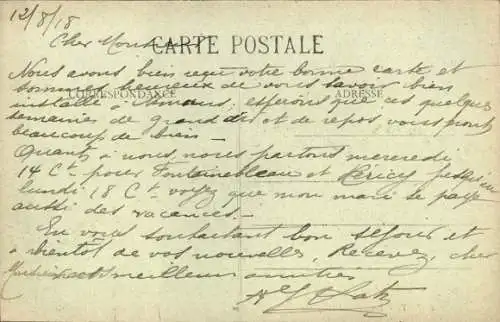 12/8/18
Cher
CARTE POSTALE
Nous avons bien reçu votre bonne carte et
CORRESPONDANCE
ADRESSE
sommes heureux de vous savoir bien
installé à ; espérons que ces quelques
semaines de grand air et de repos, vous feront
beaucoup de bien -
Quant à nous, nous partons mercredi
14 Ct. pour Fontainebleau et Héricy jusqu'au
lundi 18 Ct. voyez que mon mari se paye
aussi des vacances. -
En vous souhaitant bon séjour et
à bientôt de vos nouvelles, Recevez, cher
meilleures amitiés